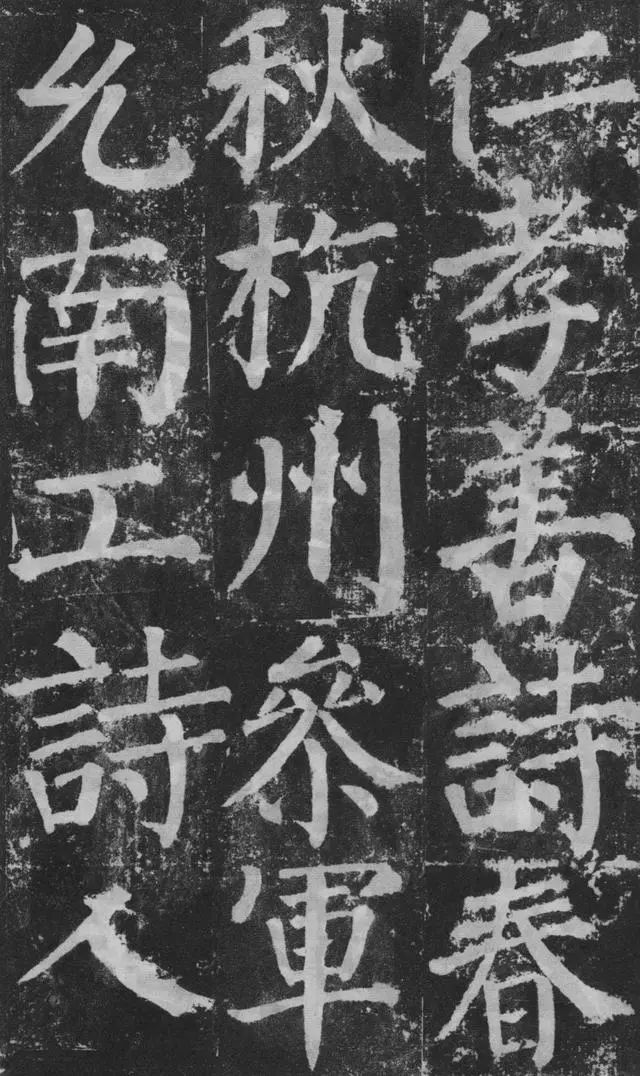 仁孝善詩春
秋杭州叅軍
允南工詩人